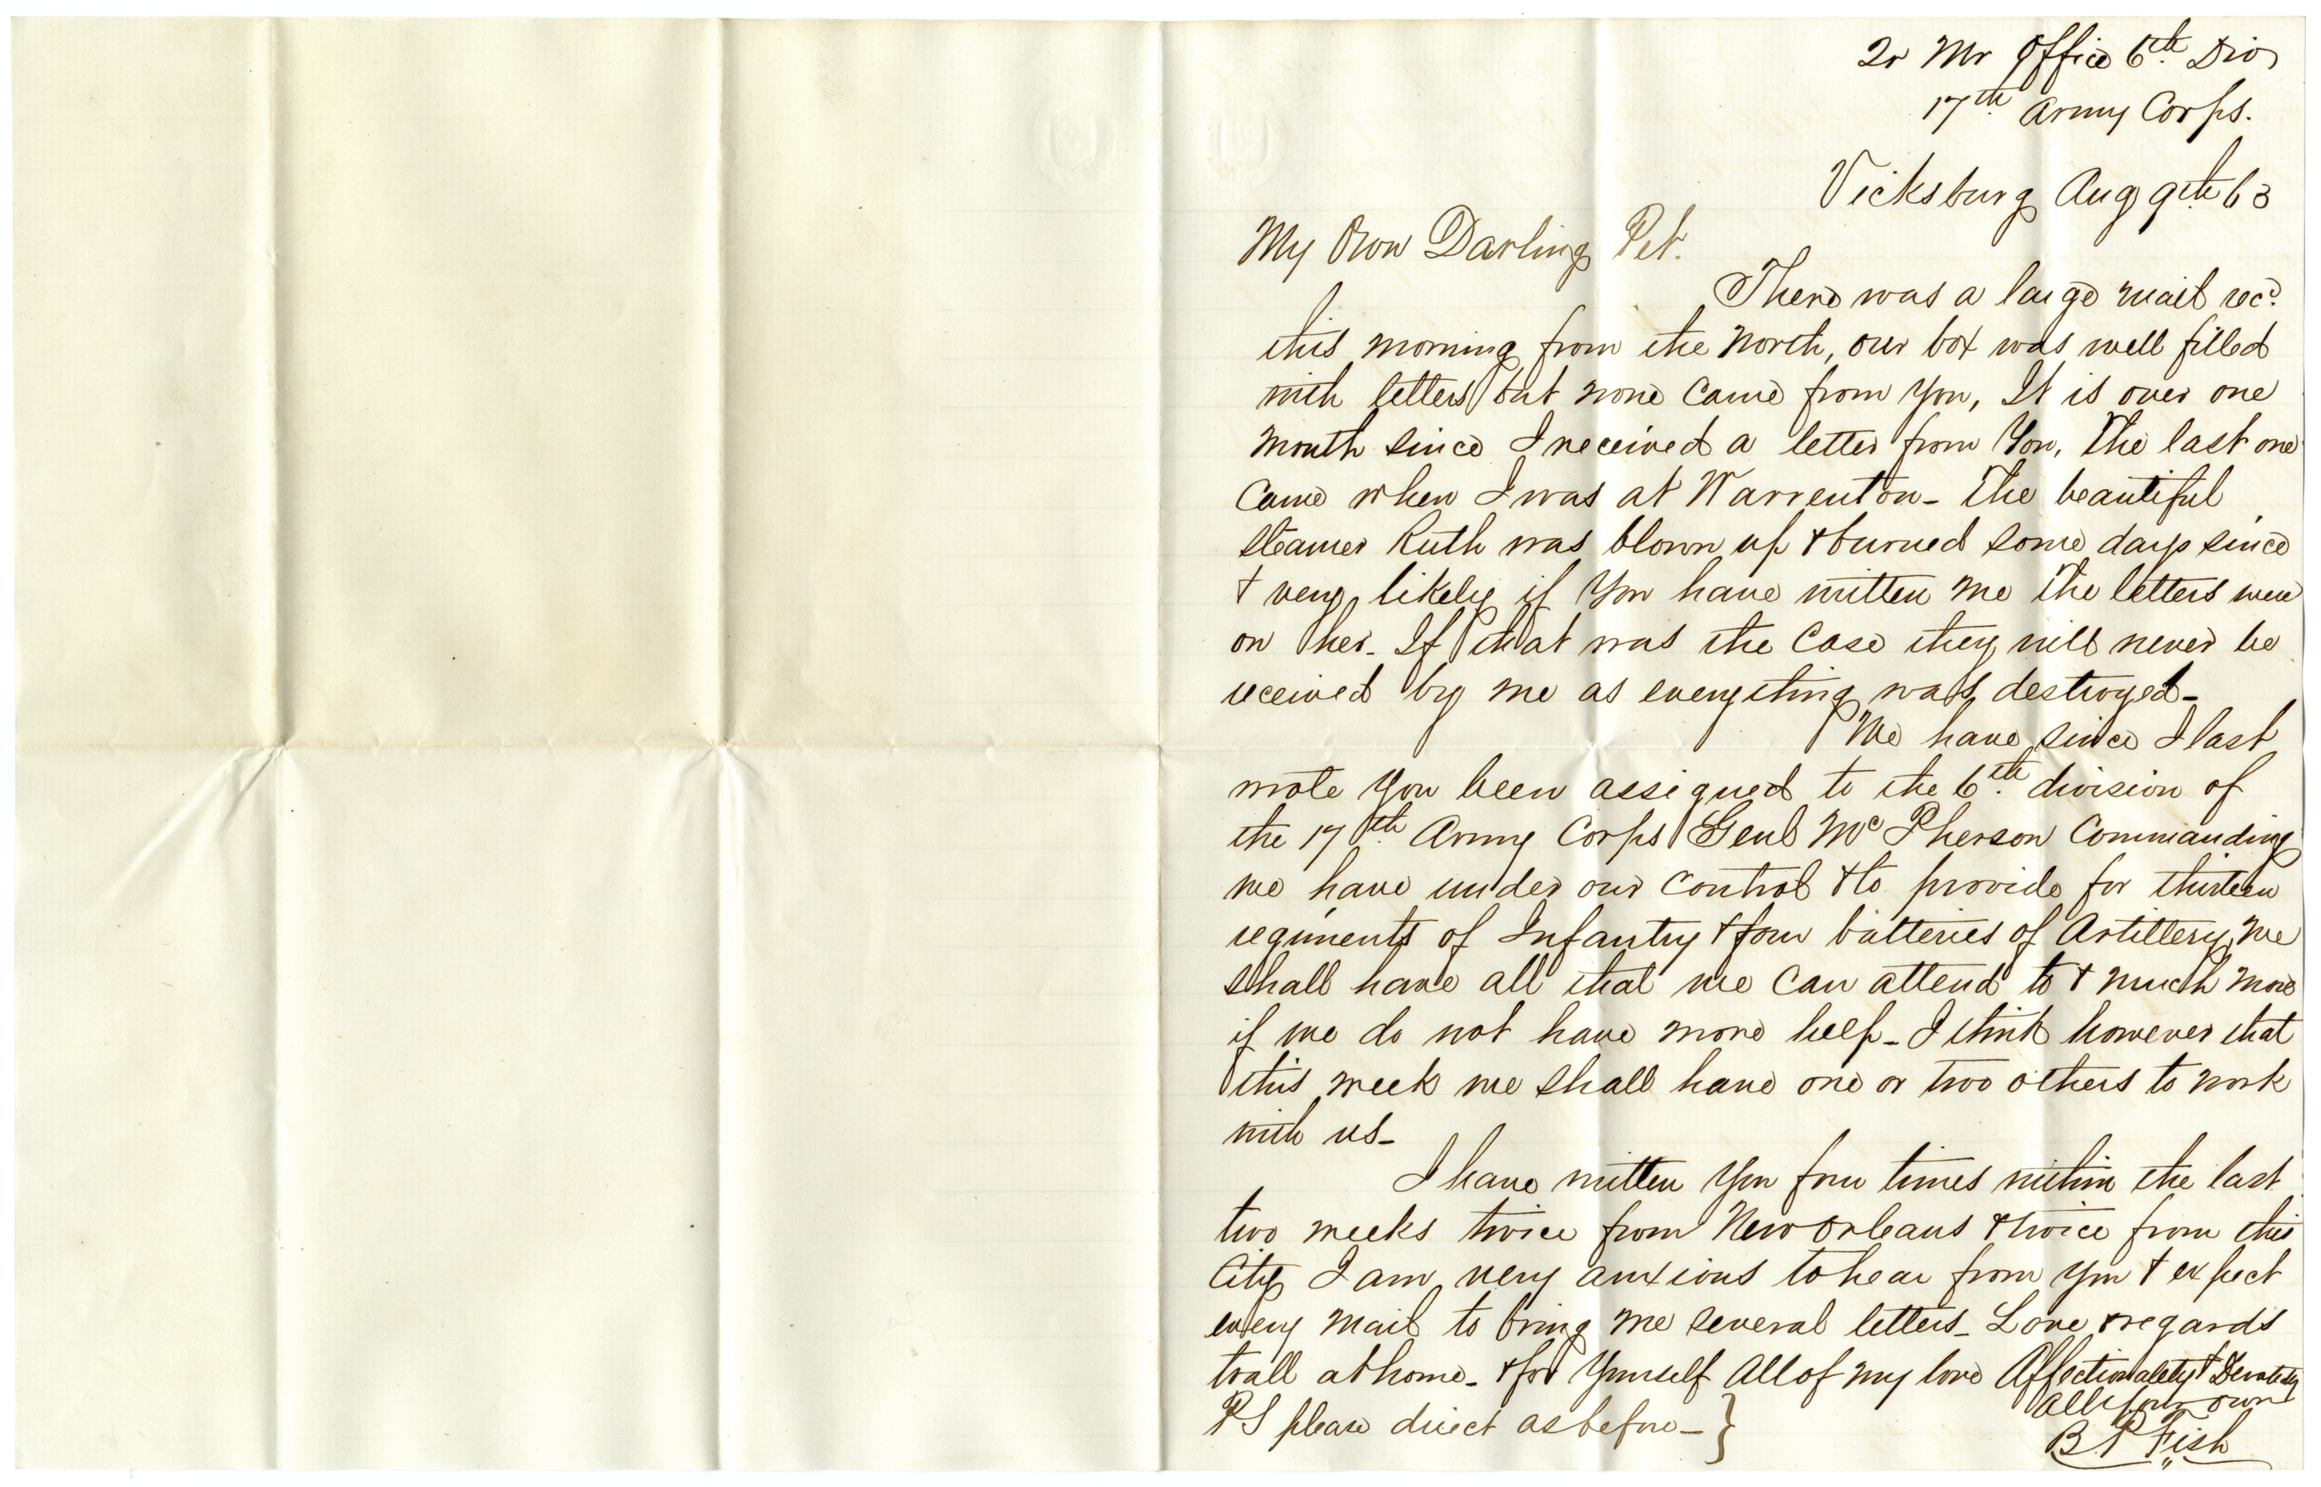 Qr Mr Office 6th Div
17th Army Corps.
Vicksburg Aug 9th 63
My Own Darling Pet.
There was a large mail recd
this morning from the North, our box was well filled
with letters but none came from you, It is over one
month since I received a letter from You, The last one
came when I was at Warrenton - The beautiful
steamer Ruth was blown up & burned some days since
& very likely if You have written me the letters were
on her - If that was the case they will never be
received by me as everything was destroyed -
We have since I last
wrote you been assigned to the 6th division of
the 17th Army Corps Genl McPherson Commanding
we have under our control & to provide for thirteen
regiments of Infantry & four batteries of Artillery, we
shall have all that we can attend to & much more
if we do not have more help - I think however that
this week we shall have one or two others to work
with us -
I have written you four times within the last
two weeks twice from New Orleans & twice from this
City I am very anxious to hear from you & expect
every mail to bring me several letters - Love & regards
to all at home - & for Yourself All of my love Affectionately & Devotedly
All Your own
B P Fish
PS please direct as before - }